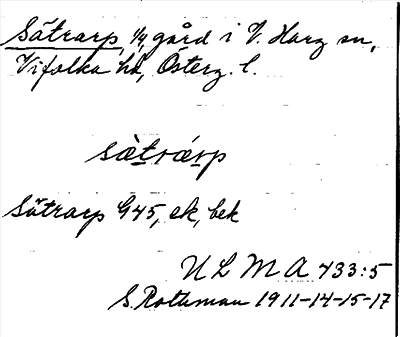 Sätrarp, 1/4 gård i V. Harg sn,
Vifolka hd, Österg. l.
sàtrárp
Sätrarp G45, ek, bek
ULMA 433:5
S. Rothman 1911-14-15-17